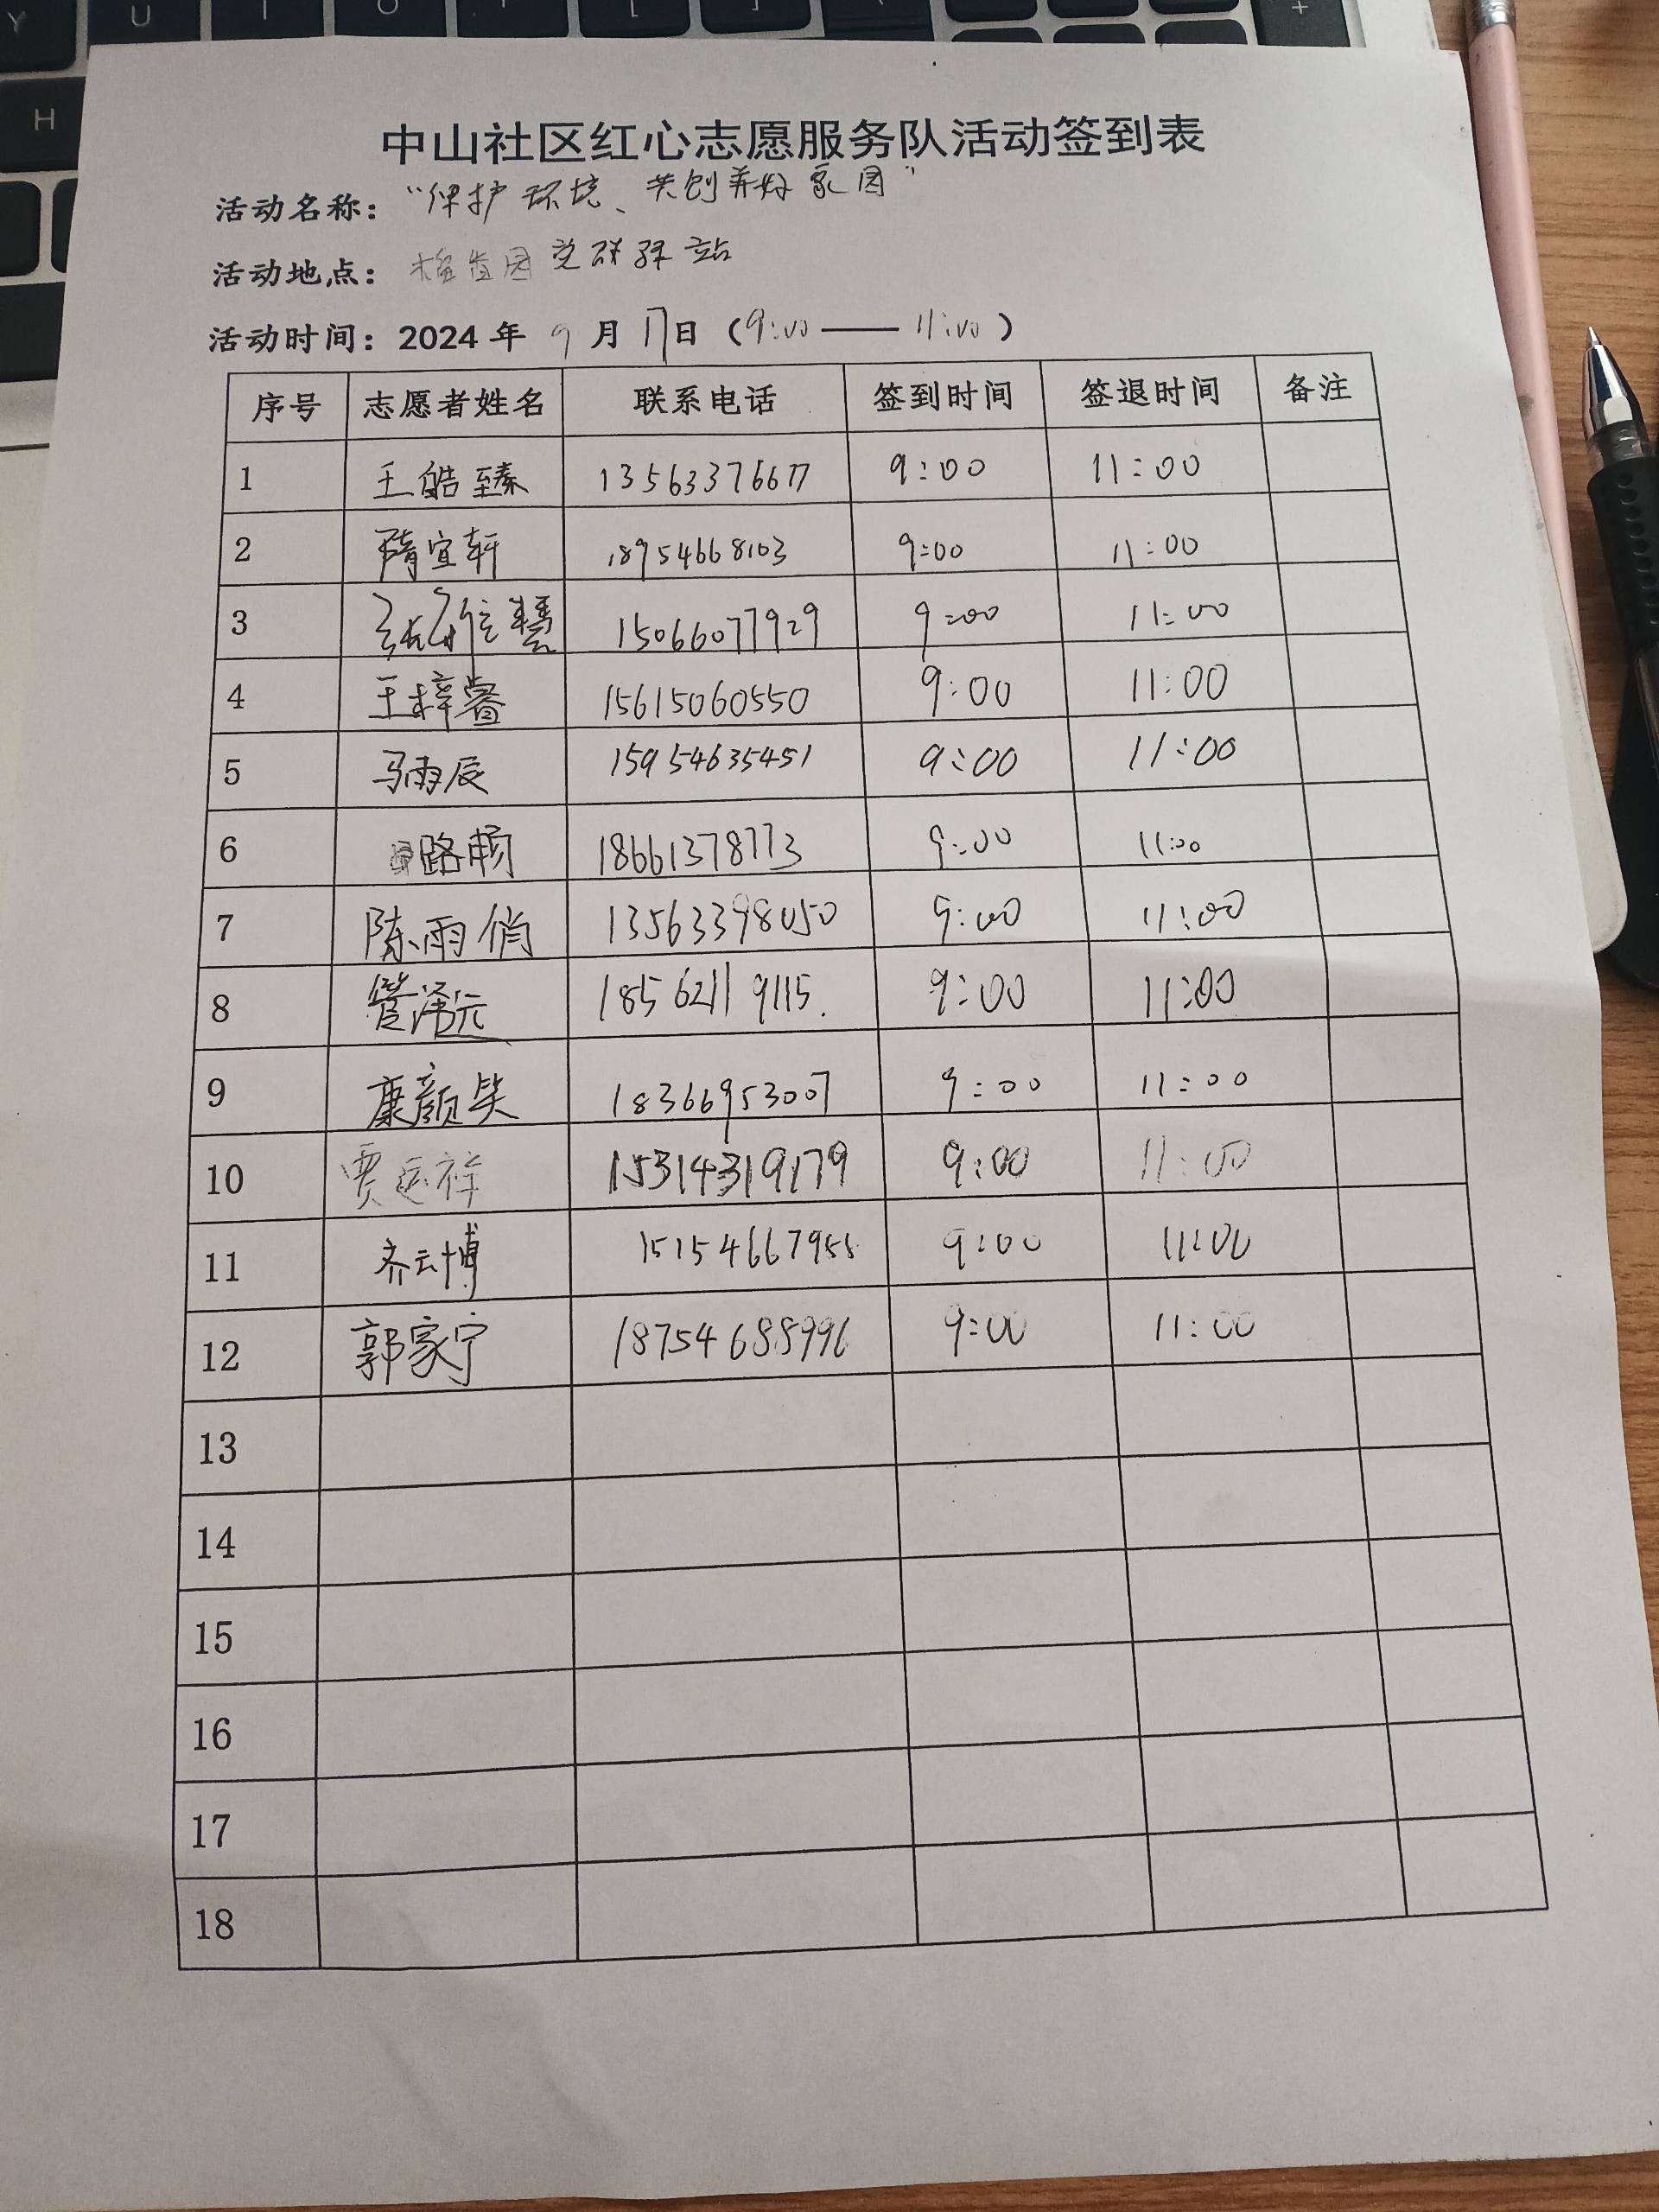 中山社区红心志愿服务队活动签到表
活动名称：“保护环境、共创美好家园”
活动地点：党群驿站
活动时间：2024年 9月 17日（9:00——11:00）
序号 志愿者姓名 联系电话 签到时间 签退时间 备注
1 王皓臻 13563376677 9:00 11:00
2 隋宜轩 18954668103 9:00 11:00
3 15066077929 9:00 11:00
4 王梓睿 15615060550 9:00 11:00
5 马雨辰 15954635451 9:00 11:00
6 路畅 18661378773 9:00 11:00
7 陈雨俏 13563398050 9:00 11:00
8 管泽元 18562119115. 9:00 11:00
9 康颜笑 18366953007 9:00 11:00
10 贾运祥 15314319179 9:00 11:00
11 齐云博 9:00 11:00
12 郭家宁 18754688996 9:00 11:00
13
14
15
16
17
18